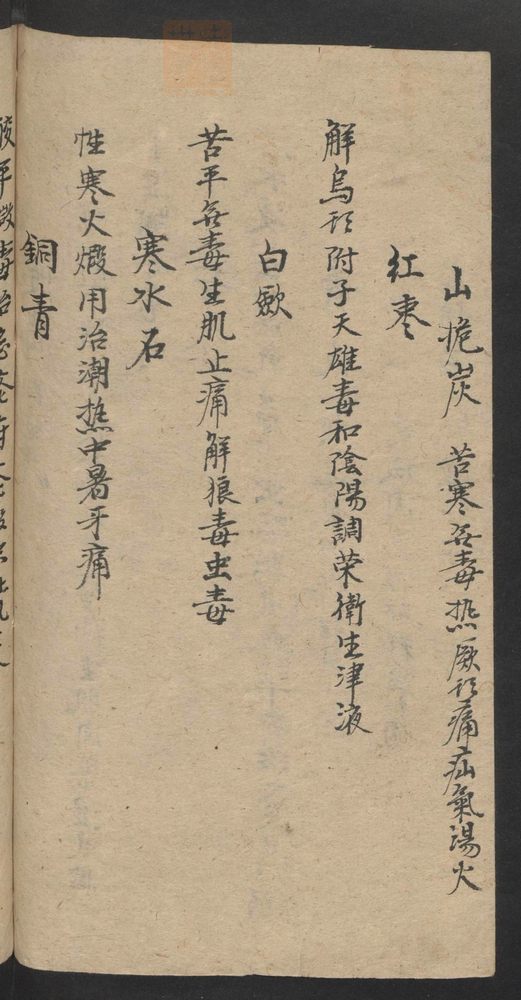 山桅炭 苦寒無毒热厥頭痛疝氣湯火
紅枣
解烏頭附子天雄毒和陰陽調荣衛生津液
白蘞
苦平無毒生肌止痛解狼毒虫毒
寒水石
性寒火煅用治潮热中暑牙痛
銅青